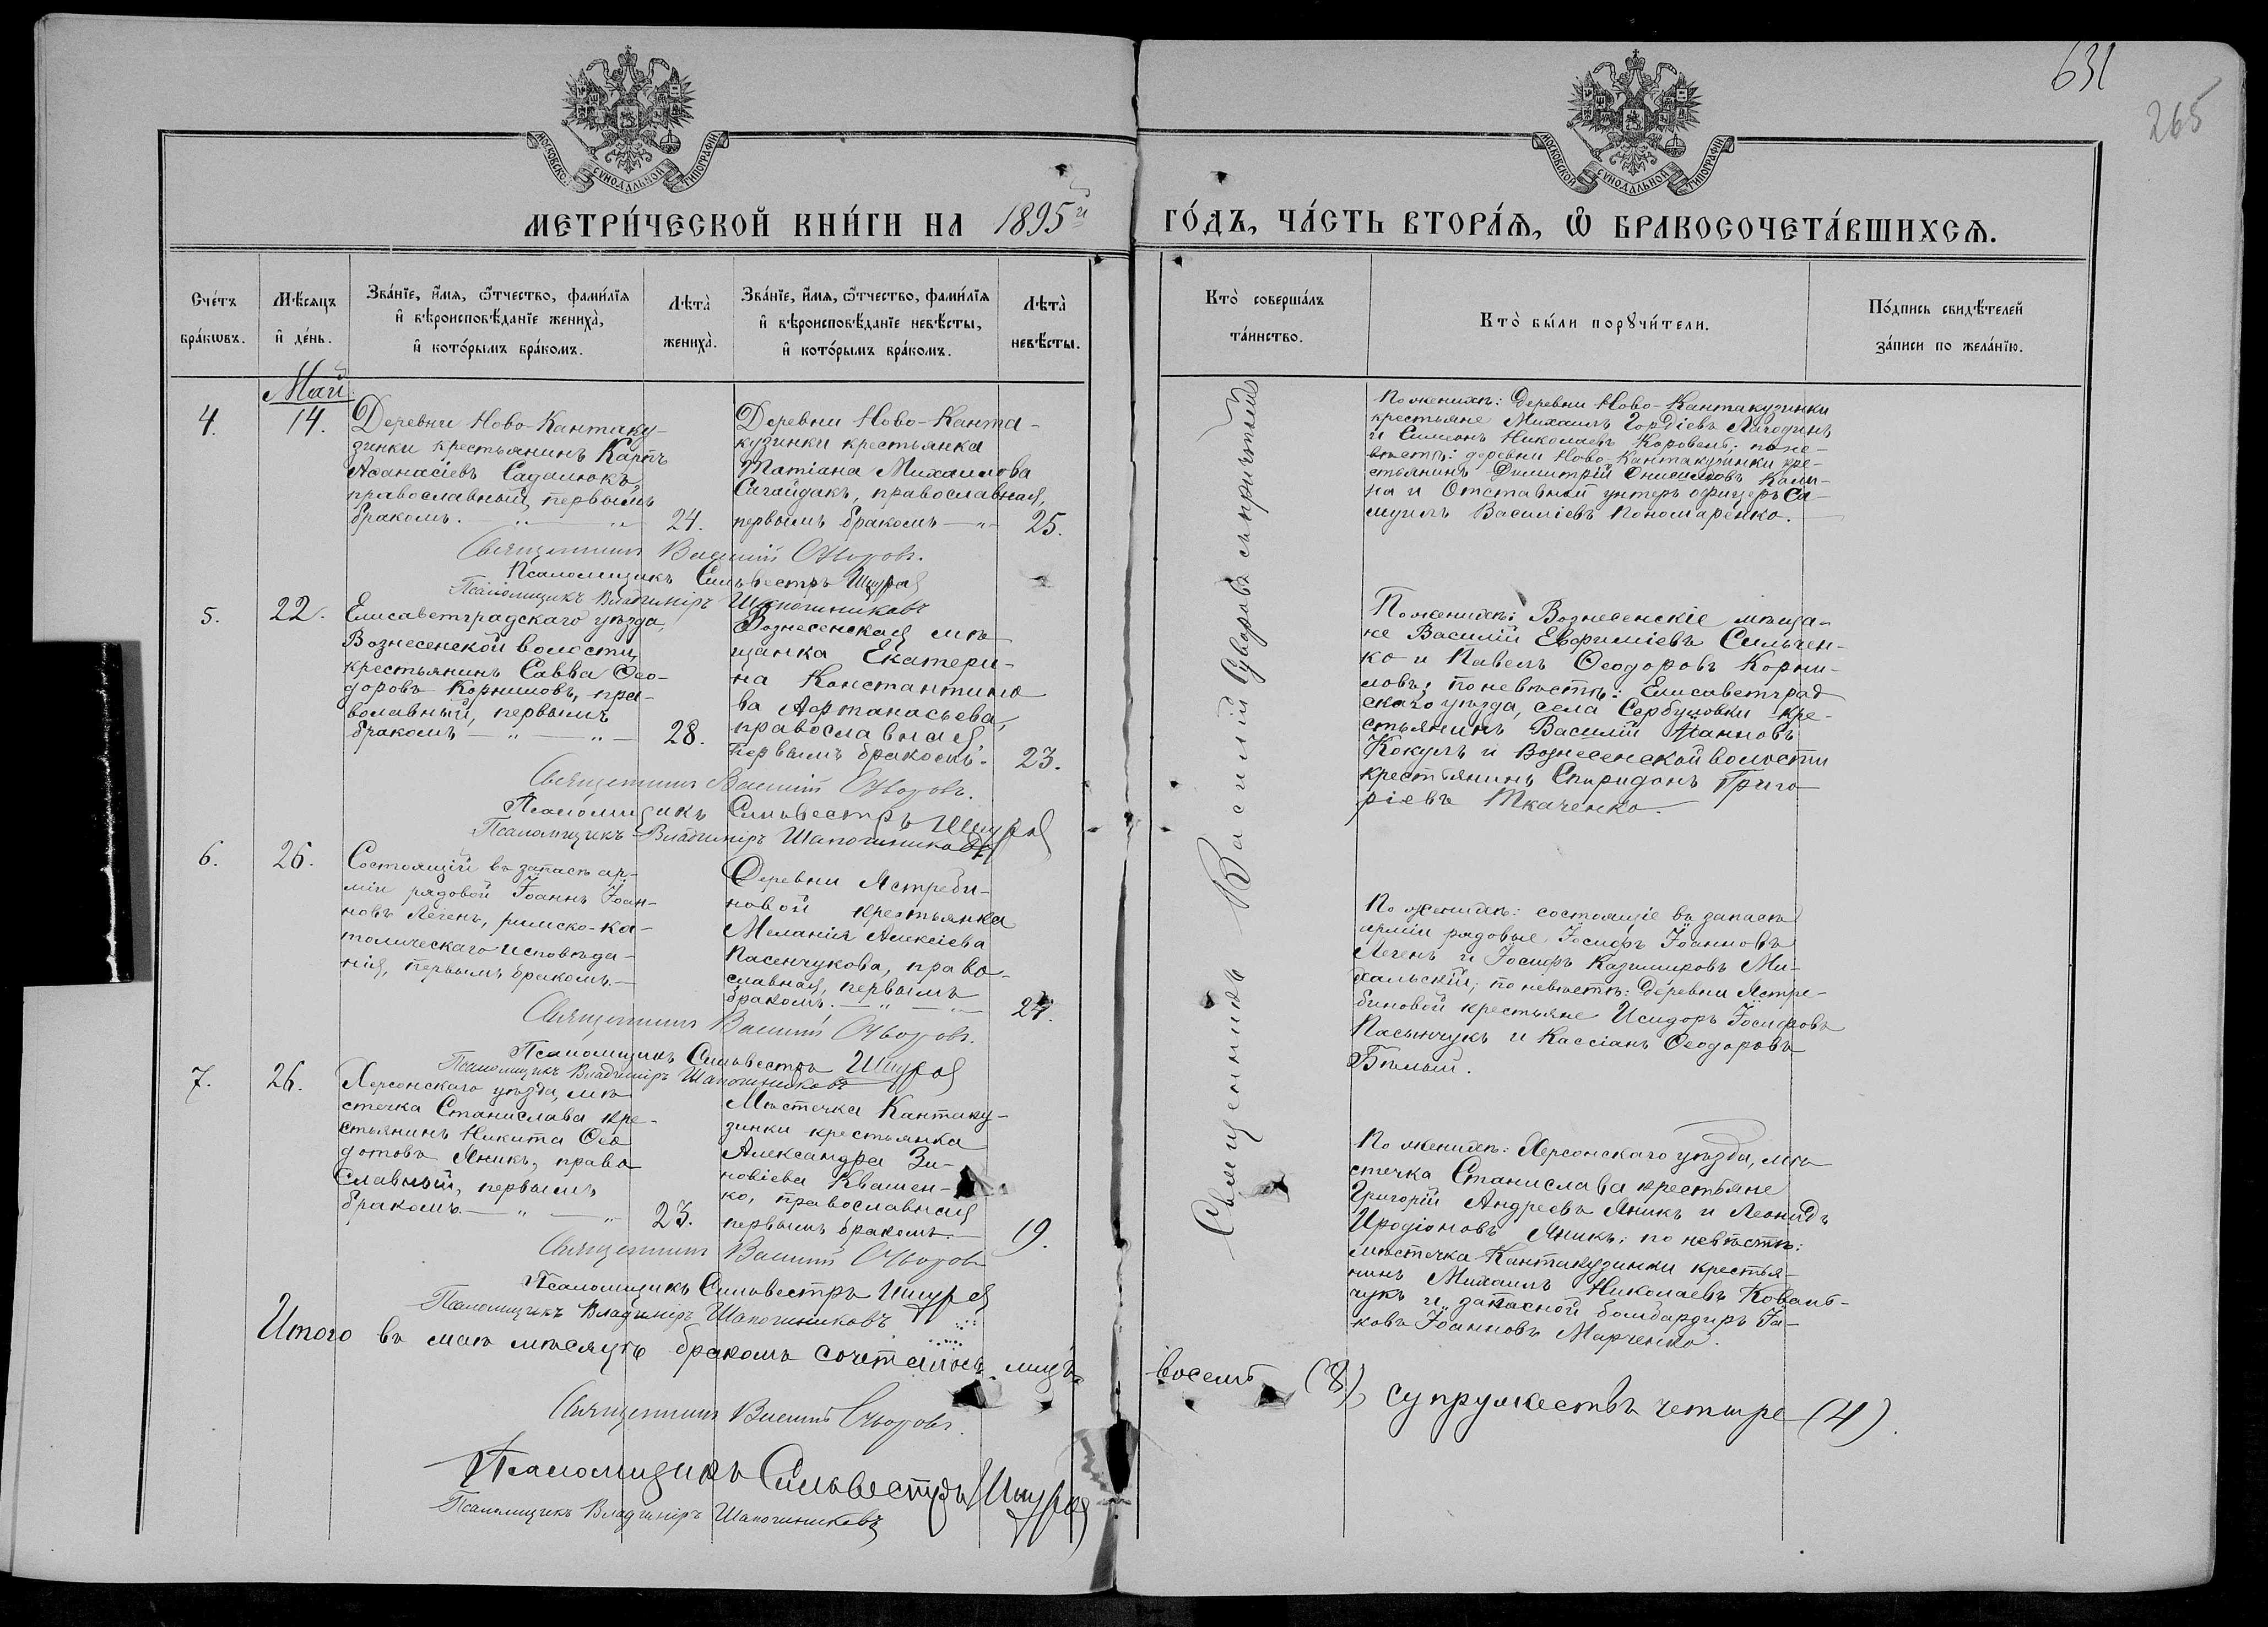 631
265
МОСКОВСКОЙ СУНОДАЛЬНОЙ ТИПОГРАФІИ
МОСКОВСКОЙ СУНОДАЛЬНОЙ ТИПОГРАФІИ
МЕТРИ́ЧЕСКОЙ КНИ́ГИ НА 1895й ГО́ДЪ, ЧА́СТЬ ВТОРА́Ѧ, Ѽ БРАКОСОЧЕТА́ВШИХСѦ.
Сче́тъ бра́кѡвъ.
Мѣ́сяцъ и҆ де́нь.
Зва́нїе, и҆́мя, ѻ҆́тчество, фами́лїя
и҆ вѣроисповѣ́данїе жениха̀,
и҆ кото́рымъ бра́комъ.
Лѣта̀ жениха̀.
Зва́нїе, и҆́мя, ѻ҆́тчество, фами́лїя
и҆ вѣроисповѣ́данїе невѣ́сты,
и҆ кото́рымъ бра́комъ.
Лѣта̀ невѣ́сты.
Кто̀ соверша́лъ та́инство.
Кто̀ бы́ли порꙋчи́тели.
По́дпись свидѣ́телей за́писи по жела́нїю.
Май
4.
14.
Деревни Ново-Кантаку-
зинки крестьянинъ Карпъ
Аѳанасіевъ Садалюкъ,
православный, первымъ
бракомъ. — " — "
24.
Деревни Ново-Канта-
кузинки крестьянка
Татіана Михаилова
Сагайдакъ, православная,
первымъ бракомъ — "
25.
По женихѣ: Деревни Ново-Кантакузинки
крестьяне Михаилъ Гордіевъ Лагодинъ
и Симеонъ Николаевъ Коровель; по не-
вѣстѣ: деревни Ново-Кантакузинки кре-
стьянинъ Димитрій Онисимовъ Кали-
на и Отставной унтеръ офицеръ Са-
муилъ Василіевъ Пономаренко.
Священникъ Василій Суворовъ.
Псаломщикъ Сильвестръ Щура
Псаломщикъ Владиміръ Шапошниковъ
5.
22.
Елисаветградскаго уѣзда,
Вознесенской волости,
крестьянинъ Савва Ѳео-
доровъ Корниловъ, пра-
вославный, первымъ
бракомъ — " — " —
28.
Вознесенская мѣ-
щанка Екатери-
на Константино
ва Афтанасьева,
православная,
первымъ бракомъ.
23.
По женихѣ: Вознесенскіе мѣща-
не Василій Евфиміевъ Сильчен-
ко и Павелъ Ѳеодоровъ Корни-
ловъ; по невѣстѣ: Елисаветград
скаго уѣзда, села Сербуловки кре-
стьянинъ Василій Іанновъ
Кокулъ и Вознесенской волости
крестьянинъ Спиридонъ Григо
ріевъ Ткаченко.
Священникъ Василій Суворовъ.
Псаломщикъ Сильвестръ Щура
Псаломщикъ Владиміръ Шапошниковъ
6.
26.
Состоящій въ запасѣ ар-
міи рядовой Іоаннъ Іоан-
новъ Легенъ, римско-ка-
толическаго исповѣда-
нія, первымъ бракомъ. —
Деревни Ястреби-
новой крестьянка
Меланія Алексіева
Пасенчукова, право-
славная, первымъ
бракомъ. — " — "
24.
По женихѣ: состоящіе въ запасѣ
арміи рядовые Іосифъ Іоанновъ
Легенъ и Іосифъ Казимировъ Ми-
хальскій; по невѣстѣ: деревни Ястре-
биновой крестьяне Исидоръ Іосифовъ
Пасынчукъ и Кассіанъ Ѳеодоровъ
Бѣлый.
Священникъ Василій Суворовъ.
Псаломщикъ Сильвестръ Щура
Псаломщикъ Владиміръ Шапошниковъ
7.
26.
Херсонскаго уѣзда, мѣ
стечка Станислава кре-
стьянинъ Никита Ѳео
дотовъ Яникъ, право
славный, первымъ
бракомъ. — " — "
23.
Мѣстечка Кантаку-
зинки крестьянка
Александра Зи-
новіева Квашен-
ко, православная
первымъ бракомъ. —
19.
По женихѣ: Херсонскаго уѣзда, мѣ
стечка Станислава крестьяне
Григорій Андреевъ Яникъ и Леонидъ
Иродіоновъ Яникъ; по невѣстѣ:
мѣстечка Кантакузинки крестья-
нинъ Михаилъ Николаевъ Коваль-
чукъ и запасной бомбардиръ Іа-
ковъ Іоанновъ Марченко.
Священникъ Василій Суворовъ
Псаломщикъ Сильвестръ Щура
Псаломщикъ Владиміръ Шапошниковъ
Священникъ Василій Суворовъ съ причтомъ
Итого въ маѣ мѣсяцѣ бракомъ сочеталось лицъ восемь (8), супружествъ четыре (4).
Священникъ Василій Суворовъ.
Псаломщикъ Сильвестръ Щура
Псаломщикъ Владиміръ Шапошниковъ